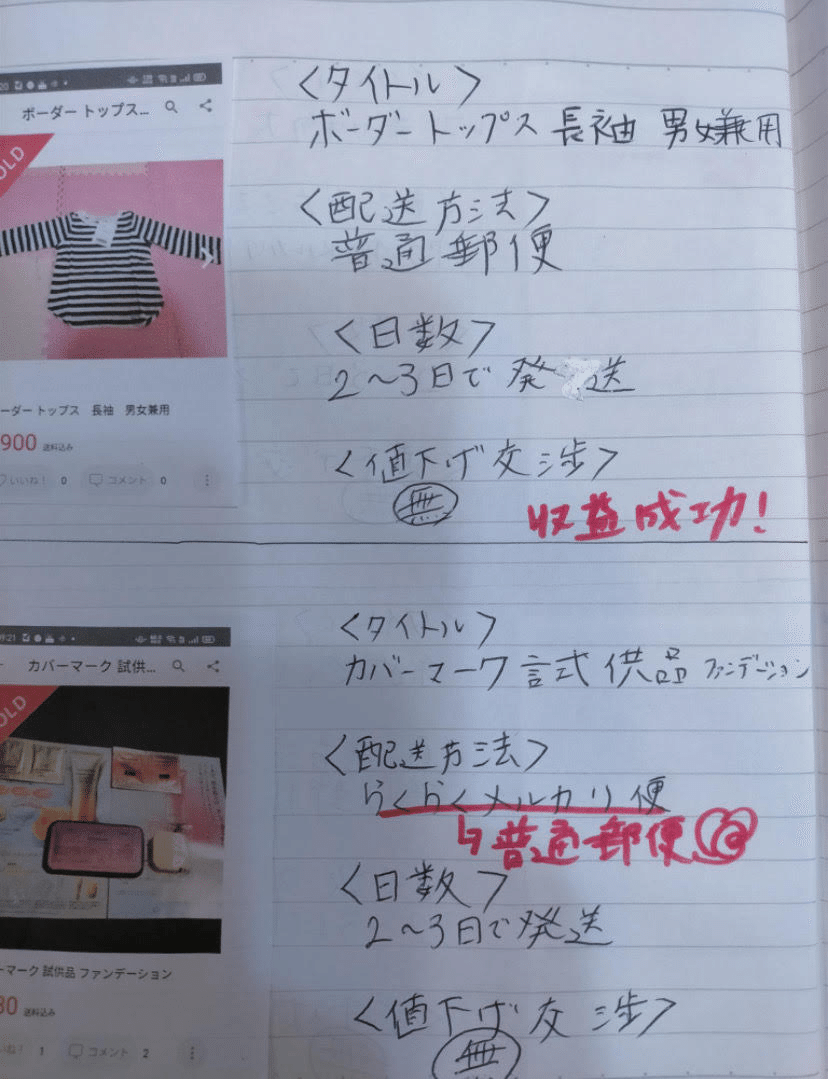 ボーダー トップス...
OLD
ーダー トップス 長袖 男女兼用
900 送料込み
いいね! 0 コメント 0
<タイトル>
ボーダートップス 長袖 男女兼用
<配送方法>
普通郵便
<日数>
2~3日で発送
<値下げ交渉>
無
収益成功!
9:21
カバーマーク 試供...
OLD
ーマーク 試供品 ファンデーション
80 送料込み
いね! 1 コメント 2
<タイトル>
カバーマーク 試供品 ファンデーション
<配送方法>
らくらくメルカリ便
↳普通郵便
<日数>
2~3日で発送
<値下げ交渉>
無